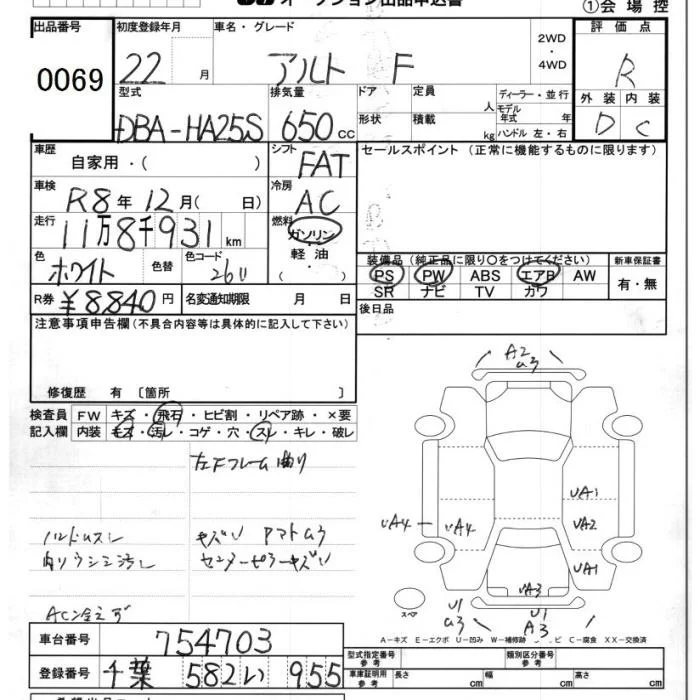 オークション出品申込書
①会場控
出品番号
0069
初度登録年月
22 月
車名・グレード
アルト F
2WD
・
4WD
評価点
R
型式
DBA-HA25S
排気量
650 cc
ドア
形状
定員
人
積載
kg
ディーラー・並行
モデル年式 年
ハンドル 左・右
外装 内装
D C
車歴
自家用・( )
シフト
FAT
セールスポイント (正常に機能するものに限ります)
車検
R8年12月( 日)
冷房
AC
走行
11万8千931km
燃料
ガソリン
・
軽油
・
色
ホワイト
色替
色コード
26U
装備品 (純正品に限り○をつけてください)
PS PW ABS エアB AW
SR ナビ TV カワ
新車保証書
有・無
R券 ¥8840円
名変通知期限 月 日
後日品
注意事項申告欄(不具合内容等は具体的に記入して下さい)
修復歴 有 〔箇所 〕
検査員
記入欄
FW キズ・飛石・ヒビ割・リペア跡・×要
内装 キズ・汚レ・コゲ・穴・スレ・キレ・破レ
左Fフレーム曲り
ハンドルスレ キズい
内ウラシミ汚し センターピラーキズい
AC冷えず
A2
U3
UA1
UA4 UA4 UA2
UA1
UA3
U1
U3
U1
A3
スペア
A−キズ E−エクボ U−凹み W−補修跡 C−腐食 XX−交換済
車台番号
754703
登録番号
千葉 582 い 955
型式指定番号
参考
類別区分番号
参考
車庫証明用
参考
長さ cm 幅 cm 高さ cm